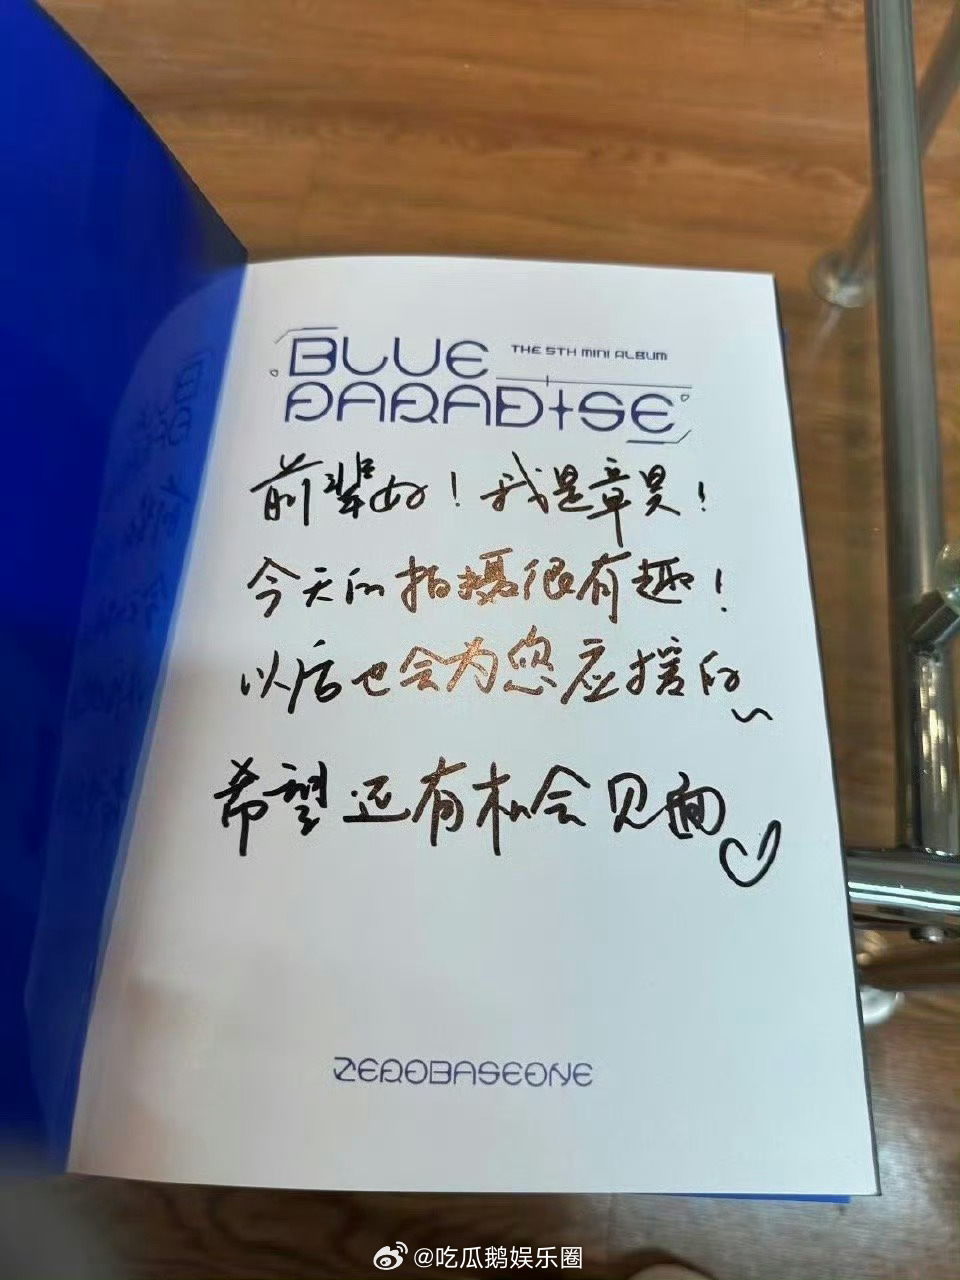 BLUE
THE 5TH MINI ALBUM
PARADISE
前辈好！我是章昊！
今天的拍摄很有趣！
以后也会为您应援的~
希望还有机会见面♡
ZEROBASEONE
@吃瓜鹅娱乐圈